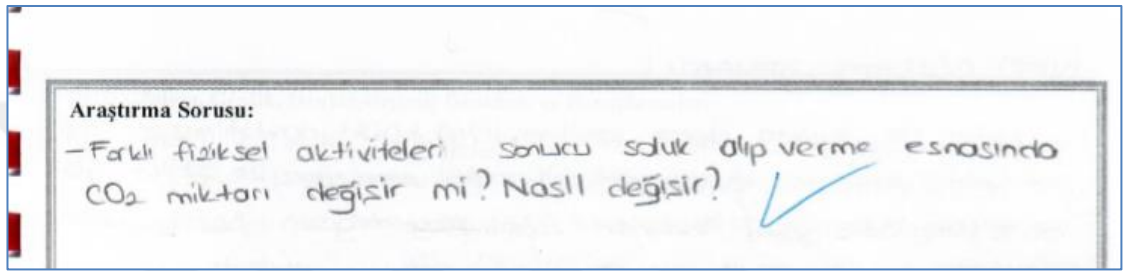 Araştırma Sorusu:
- Farklı fiziksel aktiviteleri sonucu soluk alıp verme esnasında
CO₂ miktarı değişir mi? Nasıl değişir?